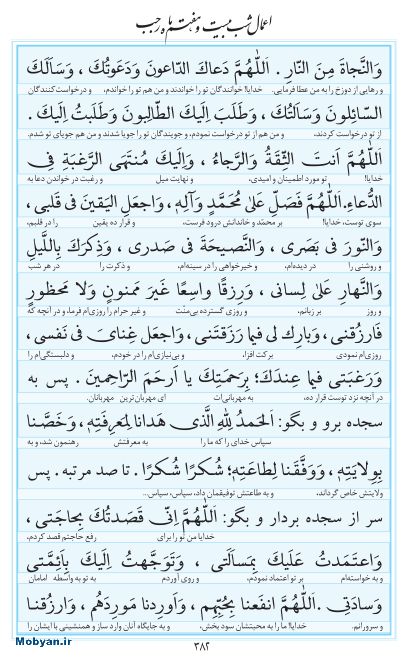 اعمال شب بیست و هفتم ماه رجب
وَالنَّجاةَ مِنَ النّارِ . اَللّٰهُمَّ دَعاكَ الدّاعونَ وَدَعَوتُكَ ، وَسَاَلَكَ
و رهایی از دوزخ را به من عطا فرمایی. خدایا! خوانندگان تو را خواندند و من هم تو را خواندم، و درخواست‌کنندگان
السّائِلونَ وَسَاَلتُكَ ، وَطَلَبَ اِلَيكَ الطّالِبونَ وَطَلَبتُ اِلَيكَ .
از تو درخواست کردند، و من هم از تو درخواست نمودم، و جویندگان تو را جویا شدند و من هم جویای تو شدم.
اَللّٰهُمَّ اَنتَ الثِّقَةُ وَالرَّجاءُ ، وَاِلَيكَ مُنتَهَى الرَّغبَةِ فِى
خدایا! تو مورد اطمینان و امیدی، و نهایت میل و رغبت در خواندن دعا به
الدُّعاءِ. اَللّٰهُمَّ فَصَلِّ عَلىٰ مُحَمَّدٍ وَآلِهِ ، وَاجعَلِ اليَقينَ فى قَلبى ،
سوی توست، خدایا! بر محمّد و خاندانش درود فرست، و قرار ده یقین را در قلبم،
وَالنّورَ فى بَصَرى ، وَالنَّصيحَةَ فى صَدرى ، وَذِكرَكَ بِاللَّيلِ
و روشنی را در دیده‌ام، و خیرخواهی را در سینه‌ام، و ذکرت را در هر شب
وَالنَّهارِ عَلىٰ لِسانى ، وَرِزقًا واسِعًا غَيرَ مَمنونٍ وَلا مَحظورٍ
و روز بر زبانم، و روزی گسترده بی‌منّت و غیر حرام را روزی‌ام فرما، و در آنچه که
فَارزُقنى ، وَبارِك لى فيما رَزَقتَنى ، وَاجعَل غِناىَ فى نَفسى ،
روزی‌ام نمودی برکت افزا، و بی‌نیازی‌ام را در خودم، و دلبستگی‌ام را
وَرَغبَتى فيما عِندَكَ؛ بِرَحمَتِكَ يا اَرحَمَ الرّاحِمينَ . پس به
در آنچه نزد توست قرار ده، به مهربانی‌ات ای مهربان‌ترین مهربانان.
سجده برو و بگو: اَلحَمدُ لِلّٰهِ الَّذى هَدانا لِمَعرِفَتِهِ، وَخَصَّنا
سپاس خدای را که ما را به معرفتش رهنمون شد، و به
بِوِلايَتِهِ ، وَوَفَّقَنا لِطاعَتِهِ؛ شُكرًا شُكرًا . تا صد مرتبه . پس
ولایتش خاص گرداند، و به طاعتش توفیقمان داد، سپاس، سپاس..
سر از سجده بردار و بگو: اَللّٰهُمَّ اِنّى قَصَدتُكَ بِحاجَتى ،
خدایا من تو را برای رفع حاجتم قصد کردم،
وَاعتَمَدتُ عَلَيكَ بِمَسأَلَتى ، وَتَوَجَّهتُ اِلَيكَ بِاَئِمَّتى
و به خواسته‌ام بر تو اعتماد نمودم، و روی آوردم به تو به واسطه امامان
وَسادَتى . اَللّٰهُمَّ انفَعنا بِحُبِّهِم ، وَاَورِدنا مَورِدَهُم ، وَارزُقنا
و سرورانم. خدایا! ما را به محبتشان سود بخش، و به جایگاه آنان وارد ساز و همنشینی با ایشان را
۳۸۲
Mobyan.ir